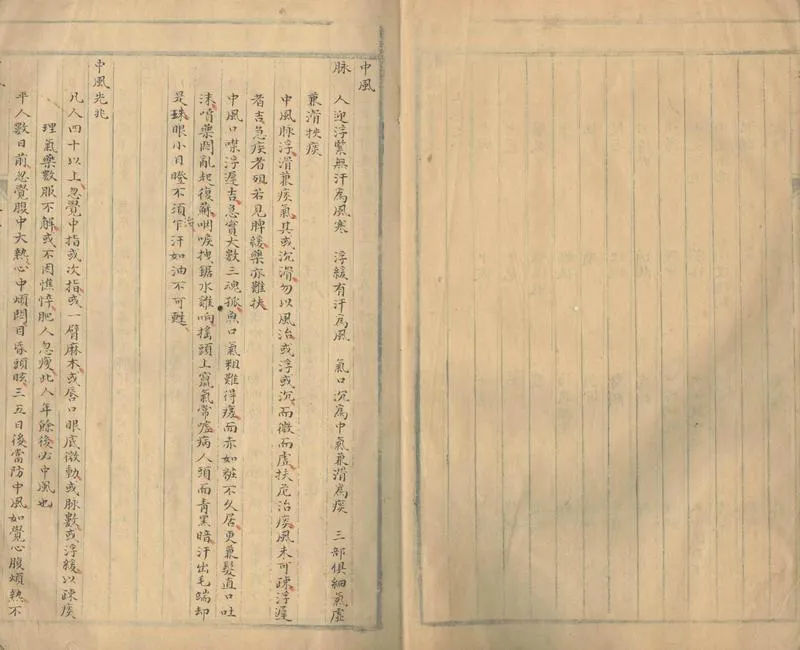 中風
脉 人迎浮緊無汗為風寒 浮緩有汗為風 氣口沉為中氣兼滑為痰 三部俱細氣虛
兼滑挾痰
中風脉浮滑兼痰氣其或沉滑勿以風治或浮或沉而微而虛扶危治痰風未可疎浮遲
者吉急疾者殂若見脾緩藥亦難扶
中風口噤浮遲吉急實大數三魂孤魚口氣粗難得瘥面赤如粧不久居更兼髮直口吐
沫噴藥悶亂起復蘇咽喉拽鋸水雞响摇頭上竄氣常噓病人頭面青黑暗汗出毛端却
是珠眼小目瞪不須乍汗如油不可甦
中風先兆
凡人四十以上忽覺中指或次指或一臂麻木或唇口眼底微動或脉數或浮緩以疎痰
理氣藥數服不解或不因憔悴肥人忽瘦此人年餘後必中風也
平人數日前忽覺腹中大熱心中煩悶目昏頭眩三五日後當防中風如覺心腹煩熱不